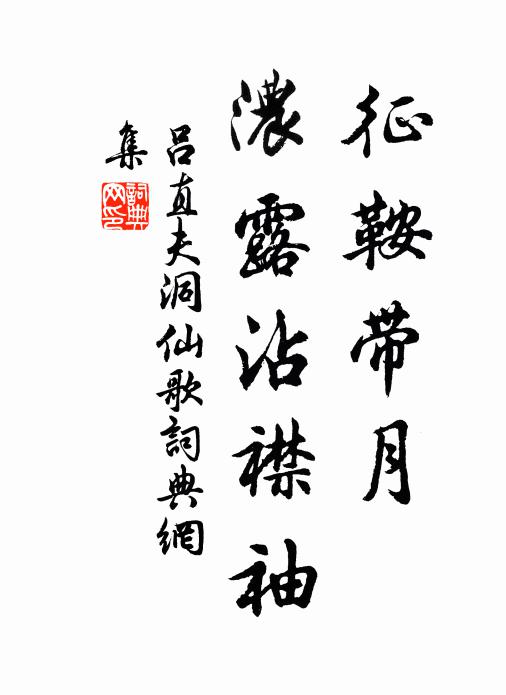 征鞍带月
濃露沾襟袖
吕直夫洞仙歌詞典網
集
詞典网印